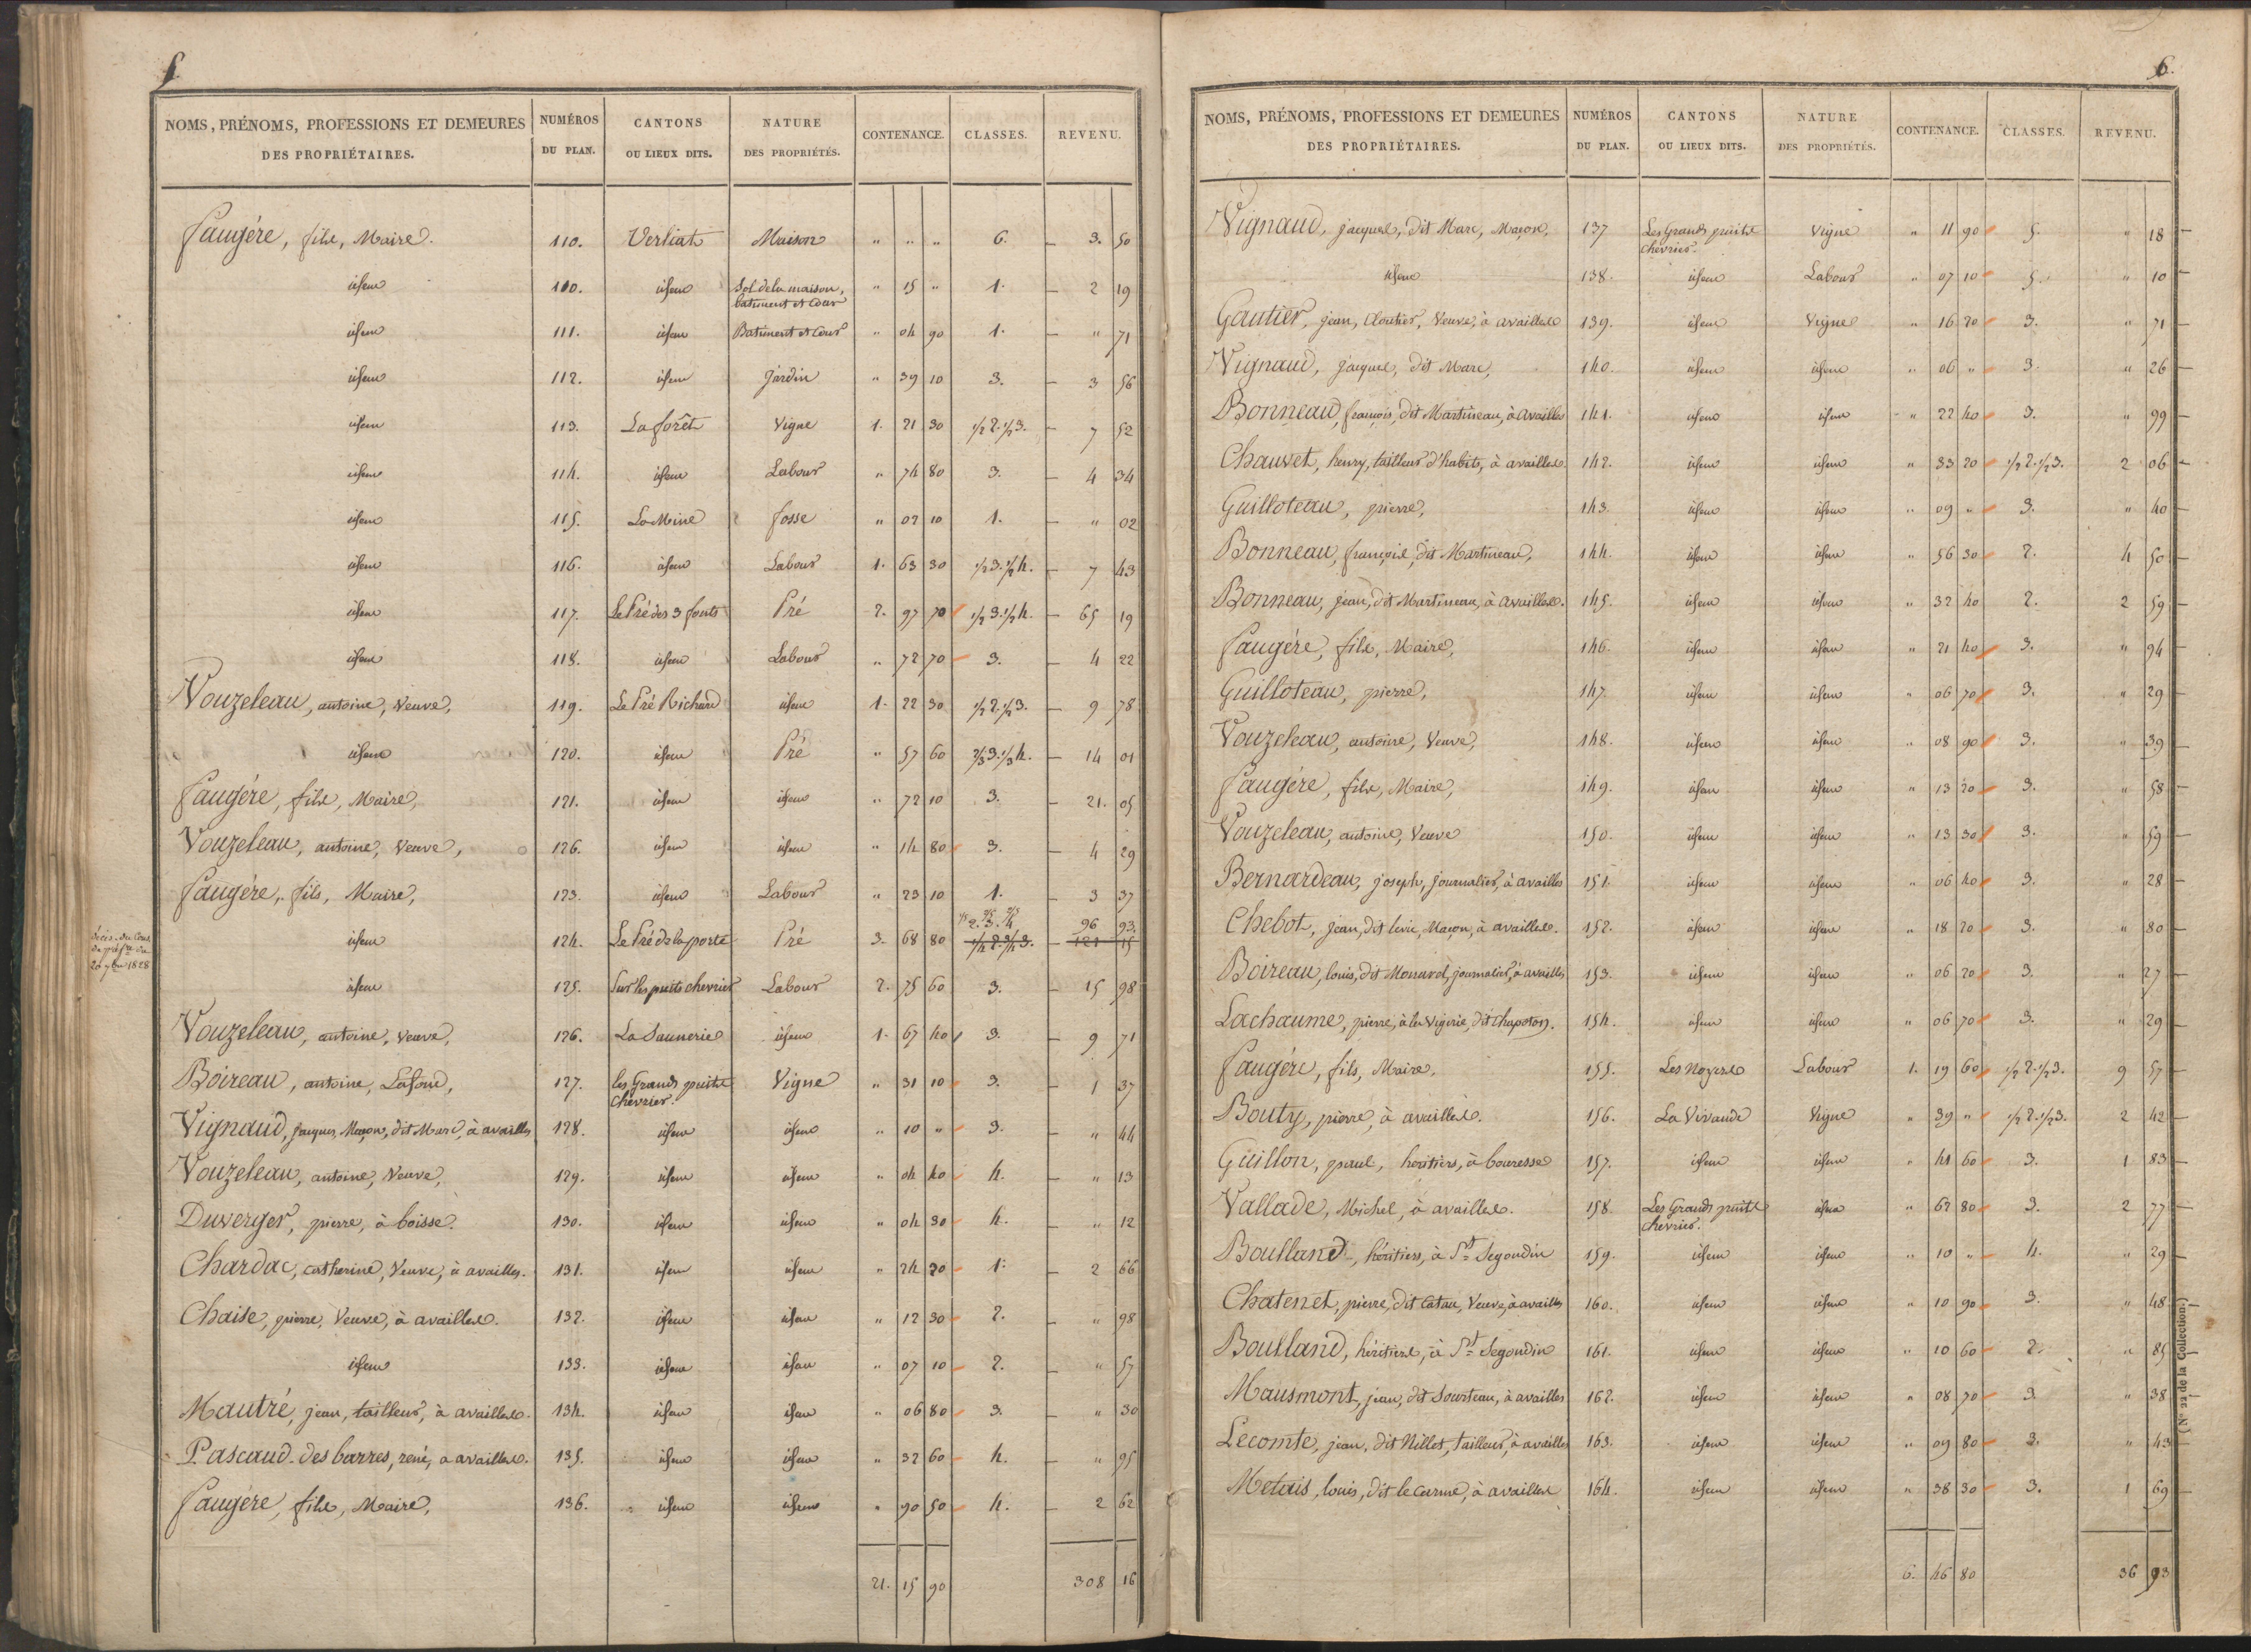 5
NOMS, PRÉNOMS, PROFESSIONS ET DEMEURES DES PROPRIÉTAIRES. NUMÉROS DU PLAN. CANTONS OU LIEUX DITS. NATURE DES PROPRIÉTÉS. CONTENANCE. CLASSES. REVENU.
faugére, fils, Maire. 110. Verliat Maison " " " 6. 3. 50
idem 110. idem Sol de la maison, batiment et Cour " 15 " 1. 2 19
idem 111. idem Batiment et Cour " 04 90 1. " 71
idem 112. idem jardin " 39 10 3. 3 56
idem 113. La forêt Vigne 1. 21 30 1/2 2. 1/2 3. 7 52
idem 114. idem Labour " 74 80 3. 4 34
idem 115. La Mine fosse " 02 10 1. " 02
idem 116. idem Labour 1. 63 30 1/2 3. 1/2 4. 7 43
idem 117. Le Pré des 3 fonts Pré 2. 97 70 1/2 3. 1/2 4. 65 19
idem 118. idem Labour " 72 70 3. 4 22
Vouzeleau, antoine, Veuve, 119. Le Pré Richard idem 1. 22 30 1/2 2. 1/2 3. 9 78
idem 120. idem Pré " 57 60 2/3 3. 1/3 4. 14 01
faugére, fils, Maire, 121. idem idem " 72 10 3. 21. 05
Vouzeleau, antoine, Veuve, 126. idem idem " 14 80 3. 4 29
faugére, fils, Maire, 123. idem Labour " 23 10 1. 3 37
décis. du Cons. de préf.re du 20 7bre 1828
idem 124. Le Pré de la porte Pré 3. 68 80 1/5 2. 2/5 3. 2/5 4 96 93.
1/4 2. 3/4 3. 121 15
idem 125. Sur les puits chevrier Labour 2. 75 60 3. 15 98
Vouzeleau, antoine, veuve, 126. La Saunerie idem 1. 67 40 3. 9 71
Boireau, antoine, Lafond, 127. les Grands puits chevrier. Vigne " 31 10 3. 1 37
Vignaud, jacques, Maçon, dit Marc, à availles 128. idem idem " 10 " 3. " 44
Vouzeleau, antoine, Veuve, 129. idem idem " 04 40 4. " 13
Duverger, pierre, à boisse. 130. idem idem " 04 30 4. " 12
Chardac, catherine, Veuve, à availles. 131. idem idem " 24 20 1. 2 66
Chaise, pierre, Veuve, à availles. 132. idem idem " 12 30 2. " 98
idem 133. idem idem " 07 10 2. " 57
Mautré, jean, tailleur, à availles. 134. idem idem " 06 80 3. " 30
Pascaud-des barres, rené, a availles. 135. idem idem " 32 60 4. " 95
faugére, fils, Maire, 136. idem idem " 90 50 4. 2 62
21. 15 90 308 16
6.
NOMS, PRÉNOMS, PROFESSIONS ET DEMEURES DES PROPRIÉTAIRES. NUMÉROS DU PLAN. CANTONS OU LIEUX DITS. NATURE DES PROPRIÉTÉS. CONTENANCE. CLASSES. REVENU.
Vignaud, jacques, dit Marc, Maçon, 137 Les Grands puits chevrier. Vigne " 11 90 5. " 18
idem 138. idem Labour " 07 10 5. " 10
Gautier, jean, Cloutier, Veuve, à availles 139. idem Vigne " 16 20 3. " 71
Vignaud, jacques, dit Marc, 140. idem idem " 06 " 3. " 26
Bonneau, françois, dit Martineau, à availles 141. idem idem " 22 40 3. " 99
Chauvet, henry, tailleur d'habits, à availles 142. idem idem " 33 20 1/2 2. 1/2 3. 2 06
Guilloteau, pierre, 143. idem idem " 09 " 3. " 40
Bonneau, françois, dit Martineau, 144. idem idem " 56 30 2. 4 50
Bonneau, jean, dit Martineau, à availles. 145. idem idem " 32 40 2. 2 59
faugére, fils, Maire, 146. idem idem " 21 40 3. " 94
Guilloteau, pierre, 147. idem idem " 06 70 3. " 29
Vouzeleau, antoine, Veuve, 148. idem idem " 08 90 3. " 39
faugére, fils, Maire, 149. idem idem " 13 20 3. " 58
Vouzeleau, antoine, Veuve 150. idem idem " 13 30 3. " 59
Bernardeau, joseph, journalier, à availles 151. idem idem " 06 40 3. " 28
Chebot, jean, dit levie, Maçon, à availles. 152. idem idem " 18 20 3. " 80
Boireau, louis, dit journalier, à availles 153. idem idem " 06 20 3. " 27
Lachaume, pierre, à la Vigerie, dit Chapoton. 154. idem idem " 06 70 3. " 29
faugére, fils, Maire. 155. Les Noyers Labour 1. 19 60 1/2 2. 1/2 3. 9 57
Bouty, pierre, à availles. 156. La Vivande Vigne " 39 " 1/2 2. 1/2 3. 2 42
Guillon, paul, héritiers, à bouresse 157. idem idem " 41 60 3. 1 83
Vallade, Michel, à availles. 158. Les Grands puits chevrier. idem " 62 80 3. 2 77
Boulland, héritiers, à St. Segondin 159. idem idem " 10 " 4. " 29
Chatenet, pierre, dit Catau, Veuve, à availles 160. idem idem " 10 90 3. " 48
Boulland, héritiers, à St. Segondin 161. idem idem " 10 60 2. " 85
Mausmont, jean, dit Sourteau, à availles 162. idem idem " 08 70 3 " 38
Lecomte, jean, dit Nillet, tailleur, à availles 163. idem idem " 09 80 3. " 43
Metais, louis, dit le Carme, à availles 164. idem idem " 38 30 3. 1 69
6. 46 80 36 93
(N° 22 de la Collection.)